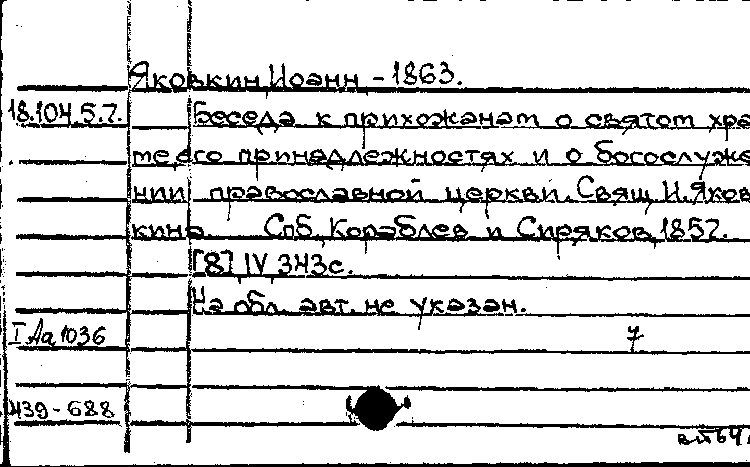 Яковкин, Иоанн - 1863.
18.104.5.7. Беседа к прихожанам о святом хра
ме, его принадлежностях и о богослуже
нии православной церкви. Свящ. И. Яков
кина. Спб., Кораблев и Сиряков, 1857.
[8], IV, 343с.
На обл. авт. не указан.
I Аа 1036 7
439-688